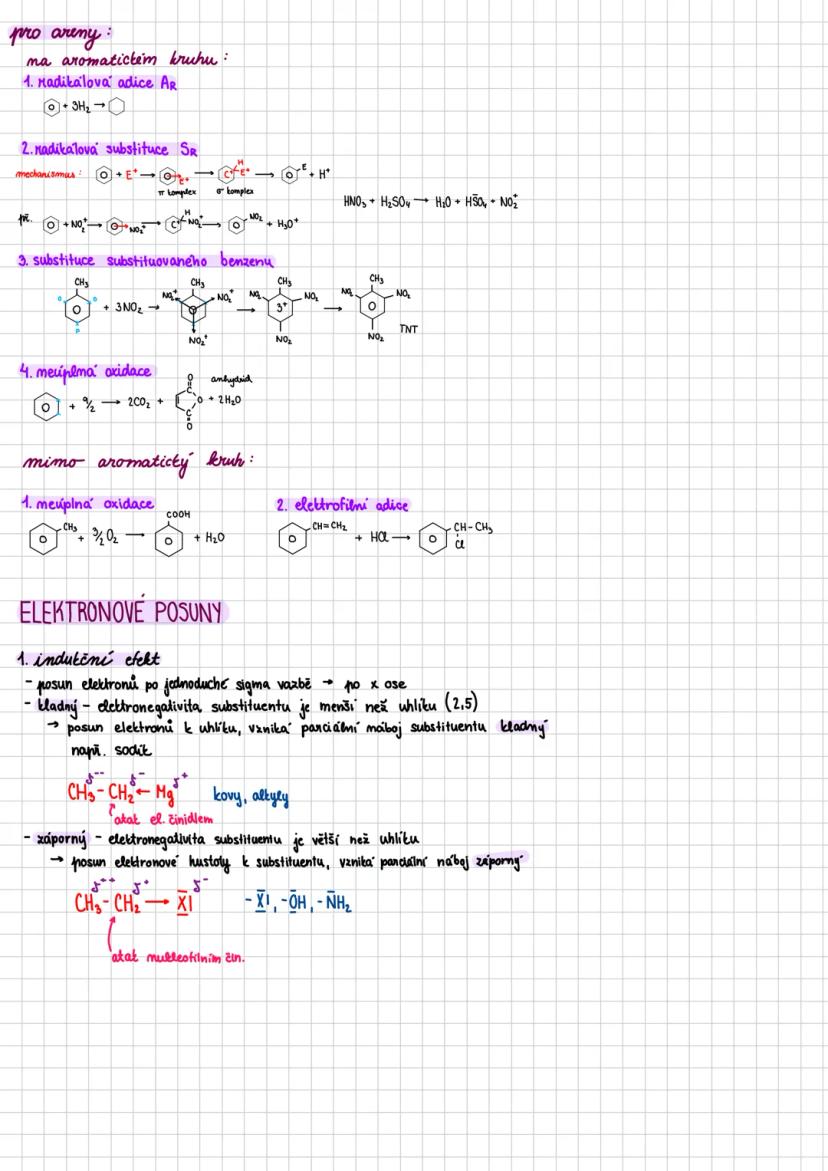 pro areny:
na aromatickém kruhu:
1. radikálová adice AR
+ 3H2 →
2. radikálová substituce SR
mechanismus: + E+ → E+ → C+ H E+ → E + H+
π komplex σ komplex
HNO3 + H2SO4 → H2O + HSO4 + NO2+
př. + NO2+ → NO2+ → C+ H NO2+ → NO2 + H3O+
3. substituce substituovaného benzenu
CH3 CH3 CH3 CH3
o o NO2+ NO2+ NO2 NO2 NO2 NO2
+ 3NO2 → → 3+ →
p NO2+ NO2 NO2 TNT
4. neúplná oxidace
O anhydrid
+ 9/2 → 2CO2 + C O C + 2H2O
O
mimo aromatický kruh:
1. neúplná oxidace 2. elektrofilní adice
CH3 + 3/2 O2 → COOH + H2O
CH=CH2 + HCl → CH-CH3
Cl
ELEKTRONOVÉ POSUNY
1. indukční efekt
- posun elektronů po jednoduché sigma vazbě → po x ose
- kladný - elektronegativita substituentu je menší než uhlíku (2,5)
→ posun elektronů k uhlíku, vzniká parciální náboj substituentu kladný
např. sodík
δ-- δ- δ+
CH3 - CH2 ← Mg kovy, alkyly
atak el. činidlem
- záporný - elektronegativita substituentu je větší než uhlíku
→ posun elektronové hustoty k substituentu, vzniká parciální náboj záporný
δ++ δ+ δ-
CH3 - CH2 → X̅| -X̅|, -OH, -NH2
atak nukleofilním čin.